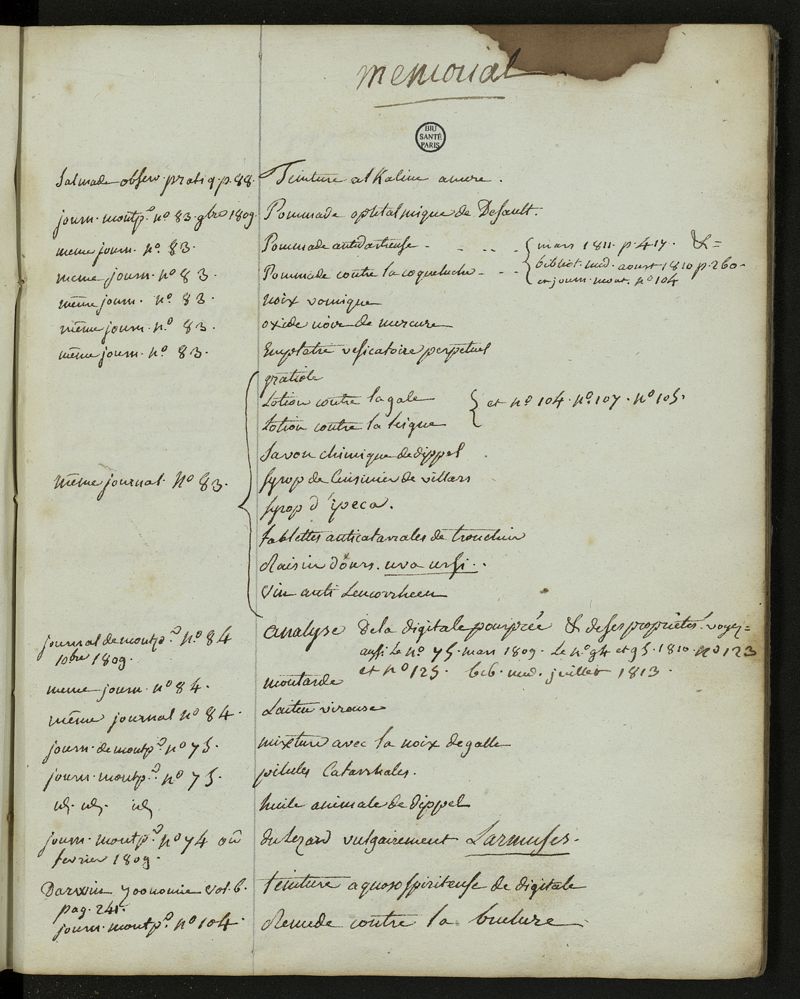 memorial
BIU
SANTÉ
PARIS
Salmade observ. pratiq. p. 88. Teinture alkaline amere.
journ. montp.er no 83. 9bre 1809. Pommade ophtalmique de Desault.
meme journ. no. 83. Pommade antidartreuse - mars 1811. p. 417. &=
meme journ. no 83. Pommade contre la coqueluche - - bibliot. med. aoust 1810 p. 260.
et journ. mont. no 104
même journ. no. 83. noix vomique
même journ. no 83. oxide noir de mercure
même journ. no 83. Emplatre vesicatoire perpetuel
gratiole
Lotion contre la gale et no 104. no. 107. no 105.
Lotion contre la teigne
Savon chimique de dippel
même journal. no 83. syrop de Cuisinier de villars
syrop d'ypeca.
tablettes anticatarrales de tronchin
Raisin d'ours. uva ursi.
Vin anti Leucorrheen
journal de montp.er no. 84 analyse De la digitale pourprée & de ses propriétés. voyez=
10bre 1809. aussi Le no 75. mars 1809. Le no 94 et 95. 1810 no 123
et no 125. bib. med. juillet 1813.
meme journ. no 84. moutarde
même journal no 84. Laitue vireuse
journ. de montp.er no 75. mixture avec la noix de galle
journ. montp.er no 75. pilules Catarrhales.
id. id. id huile animale de dippel
journ. montp.er no 74 ou du lezard vulgairement Larmuses.
fevrier 1809.
Darwin zoonomie vol. 6. teinture aquoso spiriteuse de digitale
pag. 241.
journ. montp.er no 104. Remede contre la brulure